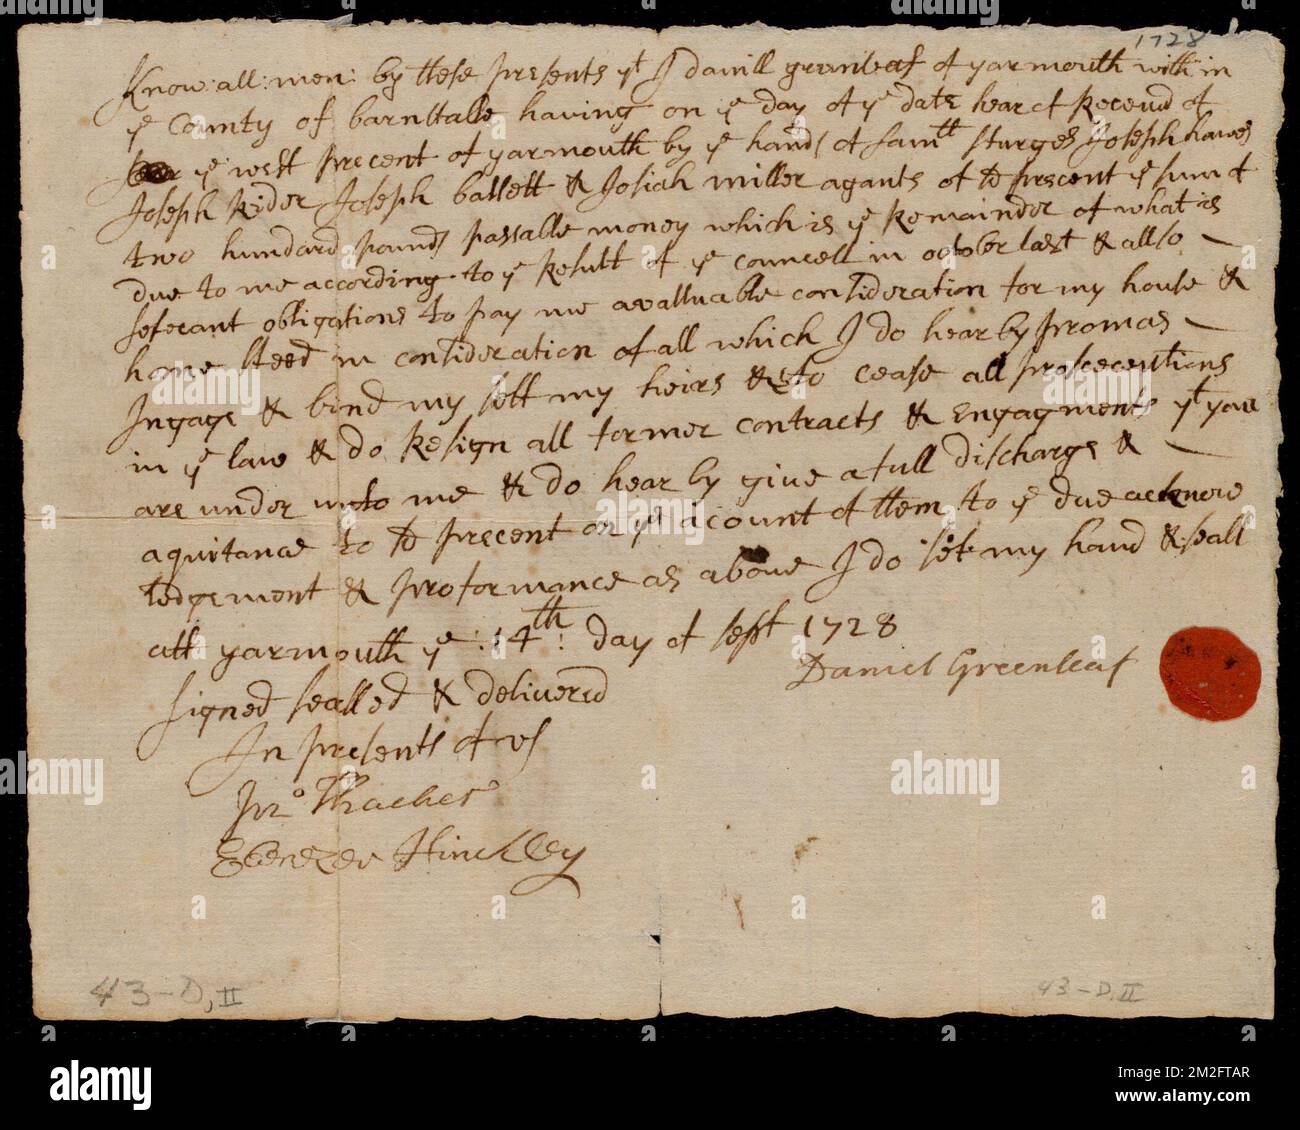 1728
Know: all: men: by these presents yt I danill greenleaf of yarmouth with in
ye County of barnstable having on ye day of ye date hear of Receiud of
ye west precent of yarmouth by ye hands of samll sturges Joseph hawes
Joseph Rider Joseph bassett & Josiah miller agants of sd precent ye sum of
two hundard pounds passable money which is ye Remainder of what is
due to me according to ye Result of ye councell in october last & allso
seferant obligations to pay me avalluable consideration for my house &
home steed in consideration of all which I do hear by promas
Ingage & bind my self my heirs & to cease all prosceceutions
in ye law & do Resign all former contracts & engagments yt
are under unto me & do hear by give a full discharge &
aquitance to sd precent on ye acount of them to ye due acknow
ledgement & proformance as above I do set my hand & seall
att yarmouth ye :14th: day of sept 1728
Daniel Greenleaf
signed sealled & delivered
In presents of us
Jno Thacher
Ebenezer Hinckley
43-D, II
43-D, II
alamy
Image ID: 2M2FTAR
www.alamy.com